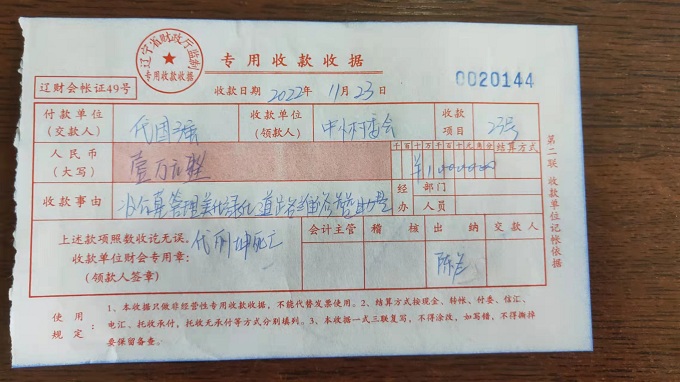 辽宁省财政厅监制
专用收款收据
专用收款收据
辽财会帐证49号
收款日期 2022年 11月23日
0020144
付款单位
(交款人)
收款单位
(领款人)
收款
项目
23号
人民币
(大写)
壹万元整
千百十万千百十元角分
结算方式
¥1000000
收款事由
经 部门
办 人员
上述款项照数收讫无误。
收款单位财会专用章:
(领款人签章)
会计主管
稽 核
出 纳
交款人
第二联 收款单位记帐依据
使用
规定
1、本收据只做非经营性专用收款收据,不能代替发票使用。2、结算方式按现金、转帐、付委、信汇、
电汇、托收承付,托收无承付等方式分别填列。3、本收据一式三联复写,不得涂改,如写错,不得撕掉
要保留备查。